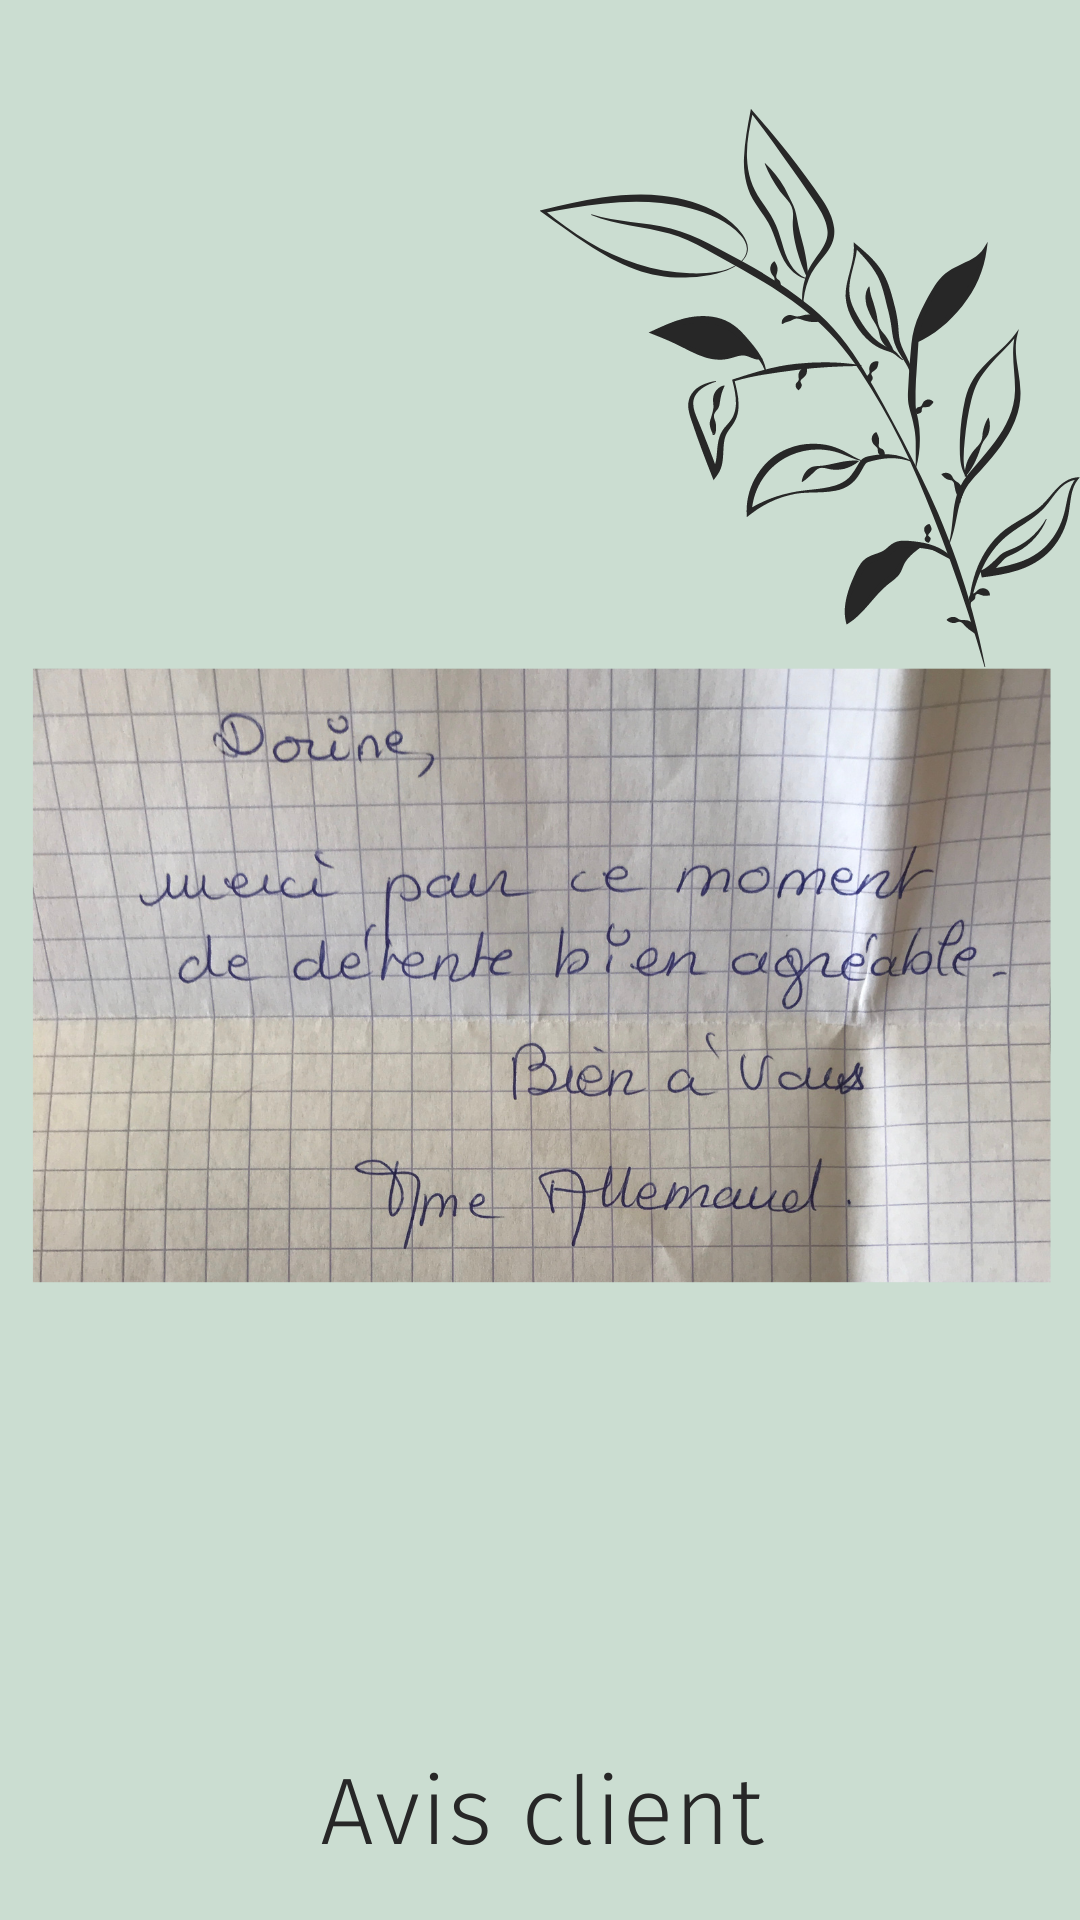 Dorine,
merci pour ce moment
de détente bien agréable.
Bien à vous
Mme Allemand.
Avis client